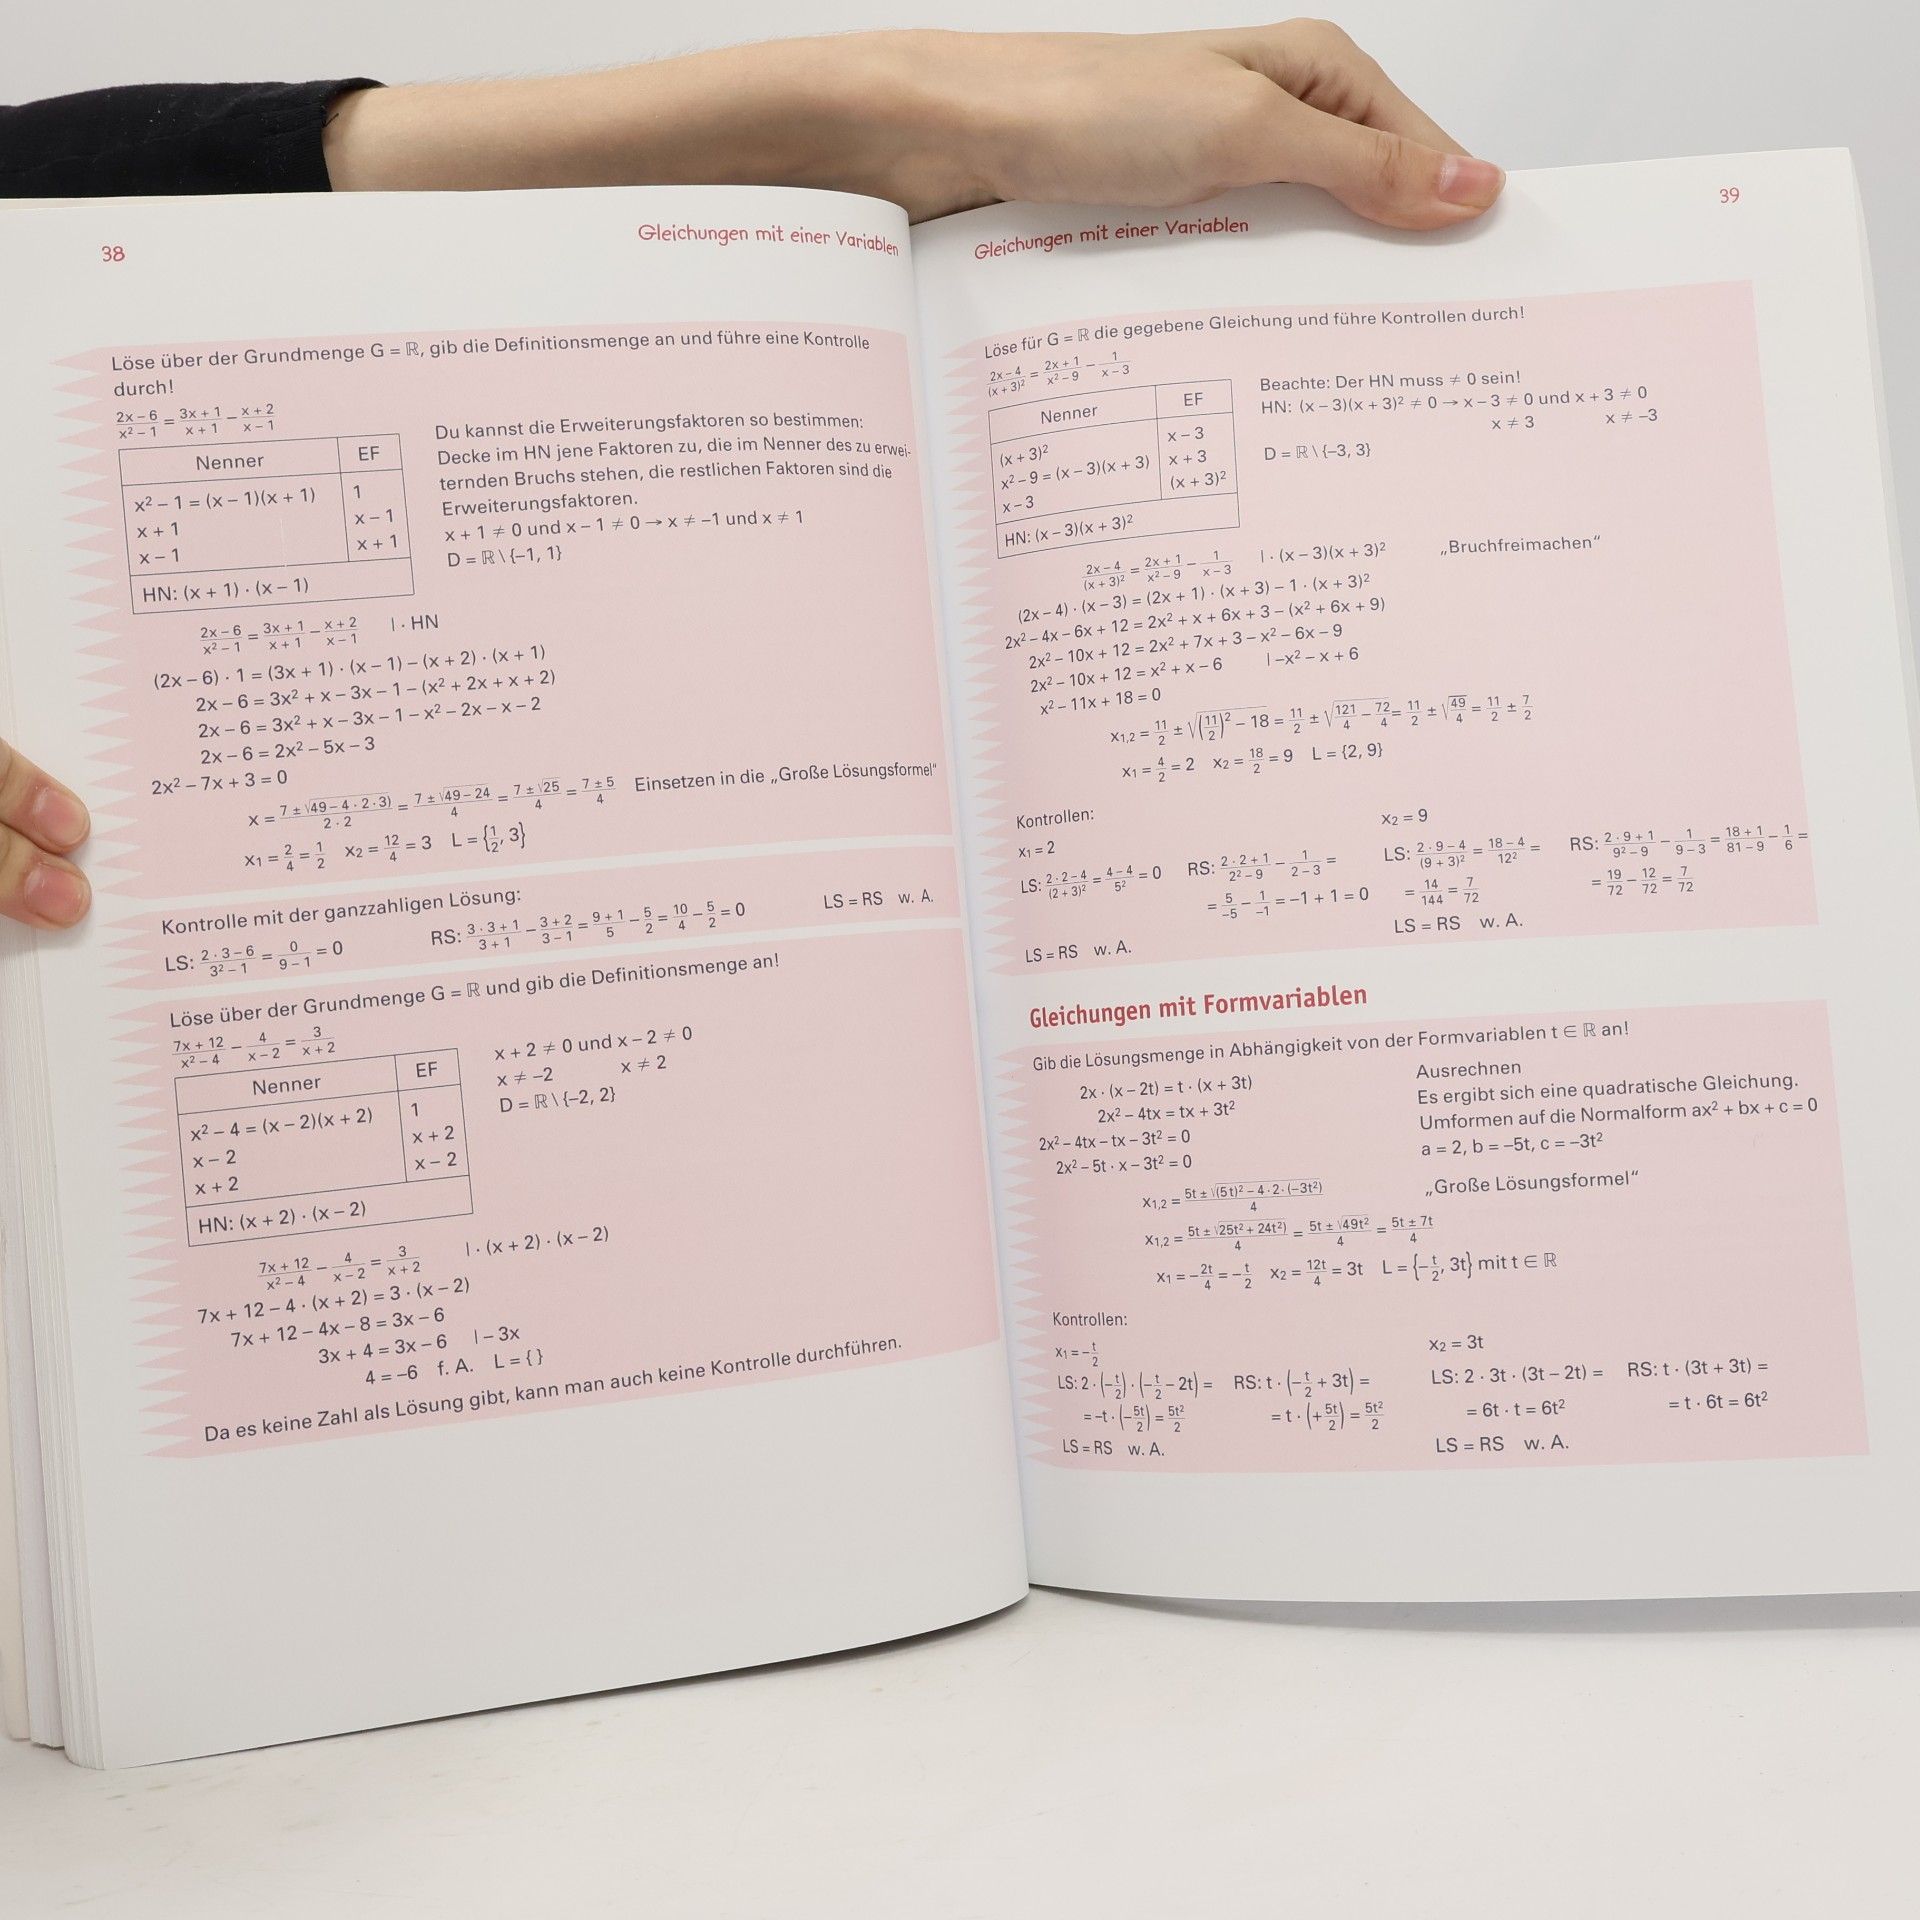 38
Gleichungen mit einer Variablen
Löse über der Grundmenge G = ℝ, gib die Definitionsmenge an und führe eine Kontrolle
durch!
(2x – 6)/(x² – 1) = (3x + 1)/(x + 1) – (x + 2)/(x – 1)
Nenner EF
x² – 1 = (x – 1)(x + 1) 1
x + 1 x – 1
x – 1 x + 1
HN: (x + 1) · (x – 1)
Du kannst die Erweiterungsfaktoren so bestimmen:
Decke im HN jene Faktoren zu, die im Nenner des zu erwei-
ternden Bruchs stehen, die restlichen Faktoren sind die
Erweiterungsfaktoren.
x + 1 ≠ 0 und x – 1 ≠ 0 → x ≠ –1 und x ≠ 1
D = ℝ \ {–1, 1}
(2x – 6)/(x² – 1) = (3x + 1)/(x + 1) – (x + 2)/(x – 1) | · HN
(2x – 6) · 1 = (3x + 1) · (x – 1) – (x + 2) · (x + 1)
2x – 6 = 3x² + x – 3x – 1 – (x² + 2x + x + 2)
2x – 6 = 3x² + x – 3x – 1 – x² – 2x – x – 2
2x – 6 = 2x² – 5x – 3
2x² – 7x + 3 = 0
x = (7 ± √(49 – 4 · 2 · 3))/(2 · 2) = (7 ± √(49 – 24))/4 = (7 ± √25)/4 = (7 ± 5)/4 Einsetzen in die „Große Lösungsformel“
x₁ = 2/4 = 1/2 x₂ = 12/4 = 3 L = {1/2, 3}
Kontrolle mit der ganzzahligen Lösung:
LS: (2 · 3 – 6)/(3² – 1) = 0/(9 – 1) = 0 RS: (3 · 3 + 1)/(3 + 1) – (3 + 2)/(3 – 1) = (9 + 1)/5 – 5/2 = 10/4 – 5/2 = 0 LS = RS w. A.
Löse über der Grundmenge G = ℝ und gib die Definitionsmenge an!
(7x + 12)/(x² – 4) – 4/(x – 2) = 3/(x + 2)
Nenner EF
x² – 4 = (x – 2)(x + 2) 1
x – 2 x + 2
x + 2 x – 2
HN: (x + 2) · (x – 2)
x + 2 ≠ 0 und x – 2 ≠ 0
x ≠ –2 x ≠ 2
D = ℝ \ {–2, 2}
(7x + 12)/(x² – 4) – 4/(x – 2) = 3/(x + 2) | · (x + 2) · (x – 2)
7x + 12 – 4 · (x + 2) = 3 · (x – 2)
7x + 12 – 4x – 8 = 3x – 6
3x + 4 = 3x – 6 | – 3x
4 = –6 f. A. L = { }
Da es keine Zahl als Lösung gibt, kann man auch keine Kontrolle durchführen.
39
Gleichungen mit einer Variablen
Löse für G = ℝ die gegebene Gleichung und führe Kontrollen durch!
(2x – 4)/(x + 3)² = (2x + 1)/(x² – 9) – 1/(x – 3)
Nenner EF
(x + 3)² x – 3
x² – 9 = (x – 3)(x + 3) x + 3
x – 3 (x + 3)²
HN: (x – 3)(x + 3)²
Beachte: Der HN muss ≠ 0 sein!
HN: (x – 3)(x + 3)² ≠ 0 → x – 3 ≠ 0 und x + 3 ≠ 0
x ≠ 3 x ≠ –3
D = ℝ \ {–3, 3}
(2x – 4)/(x + 3)² = (2x + 1)/(x² – 9) – 1/(x – 3) | · (x – 3)(x + 3)² „Bruchfreimachen“
(2x – 4) · (x – 3) = (2x + 1) · (x + 3) – 1 · (x + 3)²
2x² – 4x – 6x + 12 = 2x² + x + 6x + 3 – (x² + 6x + 9)
2x² – 10x + 12 = 2x² + 7x + 3 – x² – 6x – 9
2x² – 10x + 12 = x² + x – 6 | –x² – x + 6
x² – 11x + 18 = 0
x₁,₂ = 11/2 ± √((11/2)² – 18) = 11/2 ± √(121/4 – 72/4) = 11/2 ± √(49/4) = 11/2 ± 7/2
x₁ = 4/2 = 2 x₂ = 18/2 = 9 L = {2, 9}
Kontrollen:
x₁ = 2 x₂ = 9
LS: (2 · 2 – 4)/(2 + 3)² = (4 – 4)/5² = 0 RS: (2 · 2 + 1)/(2² – 9) – 1/(2 – 3) = LS: (2 · 9 – 4)/(9 + 3)² = (18 – 4)/12² = RS: (2 · 9 + 1)/(9² – 9) – 1/(9 – 3) = (18 + 1)/(81 – 9) – 1/6 =
= 5/–5 – 1/–1 = –1 + 1 = 0 = 14/144 = 7/72 = 19/72 – 12/72 = 7/72
LS = RS w. A. LS = RS w. A.
Gleichungen mit Formvariablen
Gib die Lösungsmenge in Abhängigkeit von der Formvariablen t ∈ ℝ an!
2x · (x – 2t) = t · (x + 3t) Ausrechnen
2x² – 4tx = tx + 3t² Es ergibt sich eine quadratische Gleichung.
2x² – 4tx – tx – 3t² = 0 Umformen auf die Normalform ax² + bx + c = 0
2x² – 5t · x – 3t² = 0 a = 2, b = –5t, c = –3t²
x₁,₂ = (5t ± √((5t)² – 4 · 2 · (–3t²)))/4 „Große Lösungsformel“
x₁,₂ = (5t ± √(25t² + 24t²))/4 = (5t ± √(49t²))/4 = (5t ± 7t)/4
x₁ = –2t/4 = –t/2 x₂ = 12t/4 = 3t L = {–t/2, 3t} mit t ∈ ℝ
Kontrollen:
x₁ = –t/2 x₂ = 3t
LS: 2 · (–t/2) · (–t/2 – 2t) = RS: t · (–t/2 + 3t) = LS: 2 · 3t · (3t – 2t) = RS: t · (3t + 3t) =
= –t · (–5t/2) = 5t²/2 = t · (+5t/2) = 5t²/2 = 6t · t = 6t² = t · 6t = 6t²
LS = RS w. A. LS = RS w. A.